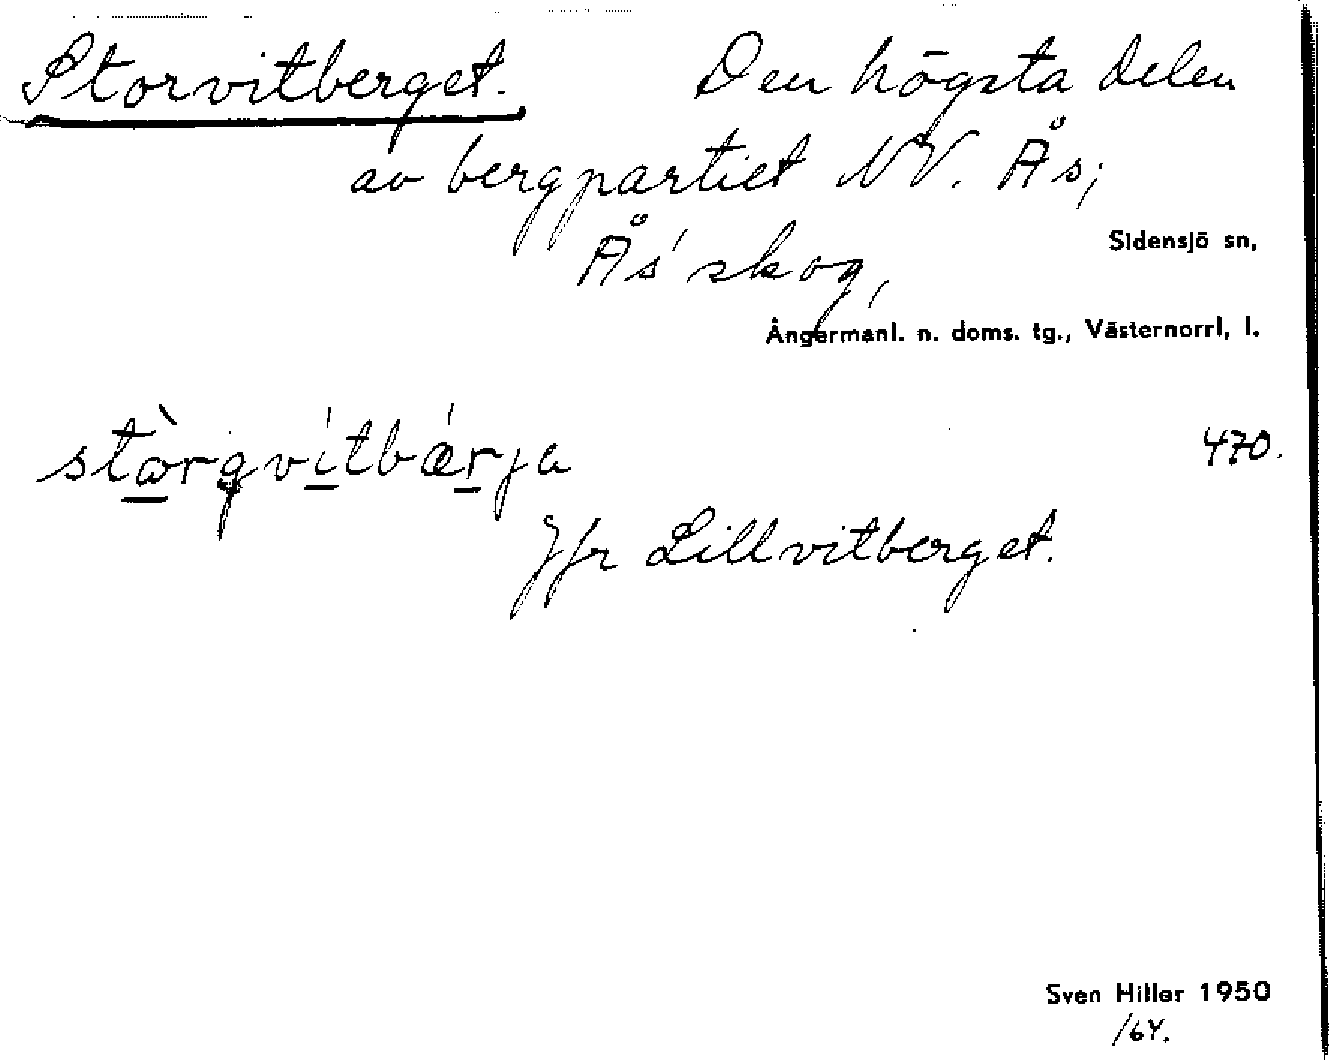 Storvitberget. Den högsta delen
av bergpartiet NV. Ås;
Ås' skog,
Sidensjö sn,
Ångermanl. n. doms. tg., Västernorrl, l.
470.
Jfr Lillvitberget.
Sven Hiller 1950
/64.